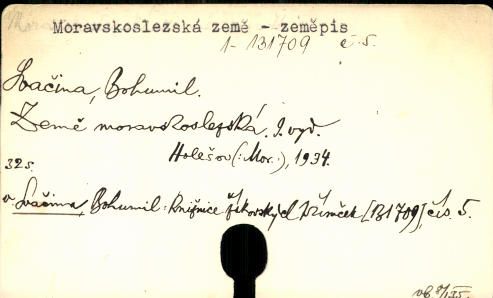 Moravskoslezská země - zeměpis
1-131709 č. 5.
Svačina, Bohumil.
Země moravskoslezská. I. vyd.
Holešov (: Mor.:), 1934.
32 s.
v Svačina, Bohumil: Knižnice žákovských [131709], čís. 5.